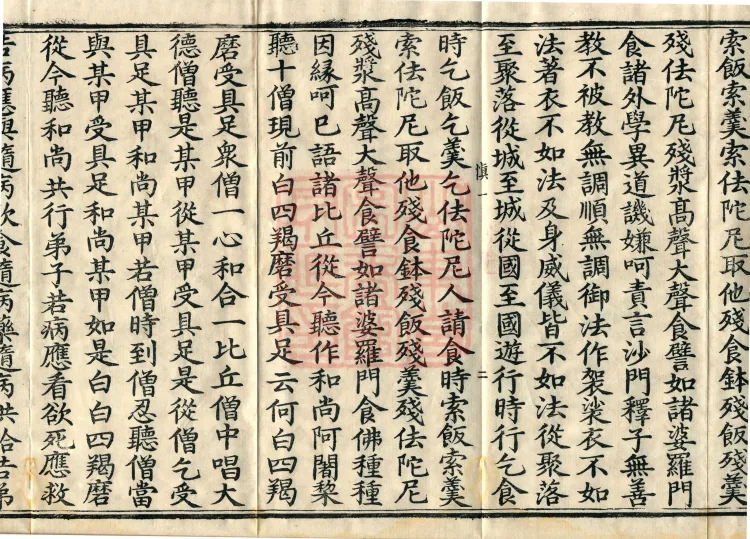 索飯索羹索佉陀尼取他殘食鉢殘飯殘羹
殘佉陀尼殘漿髙聲大聲食譬如諸婆羅門
食諸外學異道譏嫌呵責言沙門釋子無善
教不被教無調順無調御法作袈裟衣不如
法著衣不如法及身威儀皆不如法從聚落
至聚落從城至城從國至國遊行時行乞食
時乞飯乞羹乞佉陀尼人請食時索飯索羹
索佉陀尼取他殘食鉢殘飯殘羹殘佉陀尼
殘漿髙聲大聲食譬如諸婆羅門食佛種種
因緣呵已語諸比丘從今聽作和尚阿闍棃
聽十僧現前白四羯磨受具足云何白四羯
磨受具足衆僧一心和合一比丘僧中唱大
德僧聽是某甲從某甲受具足是從僧乞受
具足某甲和尚某甲若僧時到僧忍聽僧當
與某甲受具足和尚某甲如是白白四羯磨
從今聽和尚共行弟子若病應看欲死應救
若病應與隨病飲食隨病藥隨病供給若弟